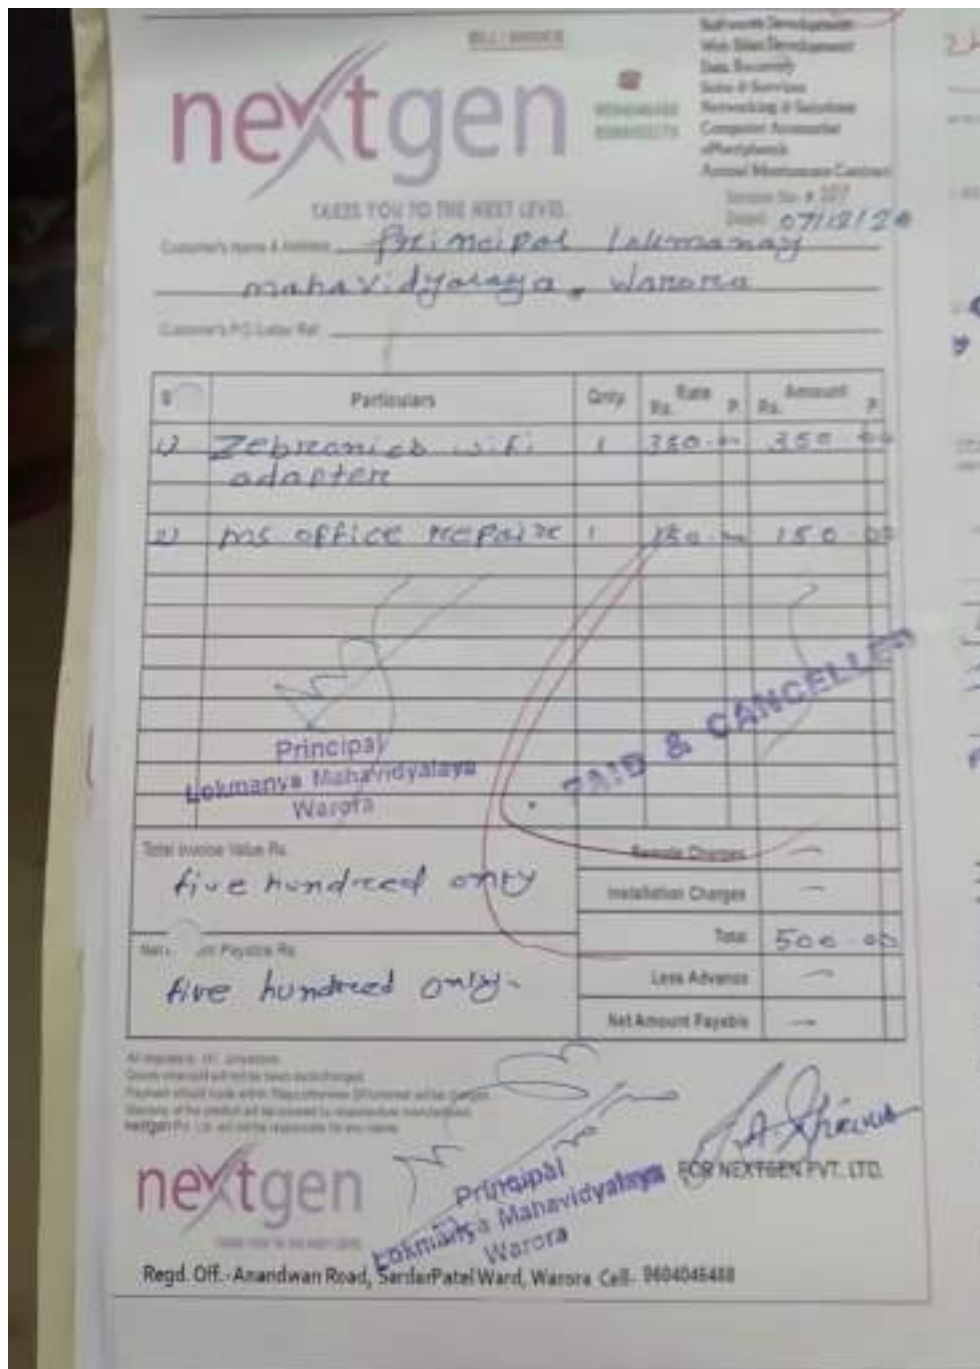 BILL / INVOICE
nextgen
TAKES YOU TO THE NEXT LEVEL
Software Development
Web Sites Development
Data Recovery
Sales & Services
Networking & Solutions
Computer Accessories
Annual Maintenance Contract
Invoice No.- # 107
Dated: 07/12/20
Customer's Name & Address Principal Lokmanay
mahavidyalaya. Warora
Customer's P.O./Letter Ref.
Particulars Qnty. Rate Rs. P. Amount Rs. P.
1) Zebronics wifi 1 350 - 350 00
adapter
2) ms office repaire 1 150 - 150 00
PAID & CANCELLED
Principal
Lokmanya Mahavidyalaya
Warora
Total Invoice Value Rs.
five hundred only
Remote Charges —
Installation Charges —
Total 500.00
Payable Rs.
five hundred only-
Less Advance —
Net Amount Payable —
nextgen
Principal
Lokmanya Mahavidyalaya
Warora
FOR NEXTGEN PVT. LTD.
Regd. Off.- Anandwan Road, SardarPatel Ward, Warora Cell- 9604046488